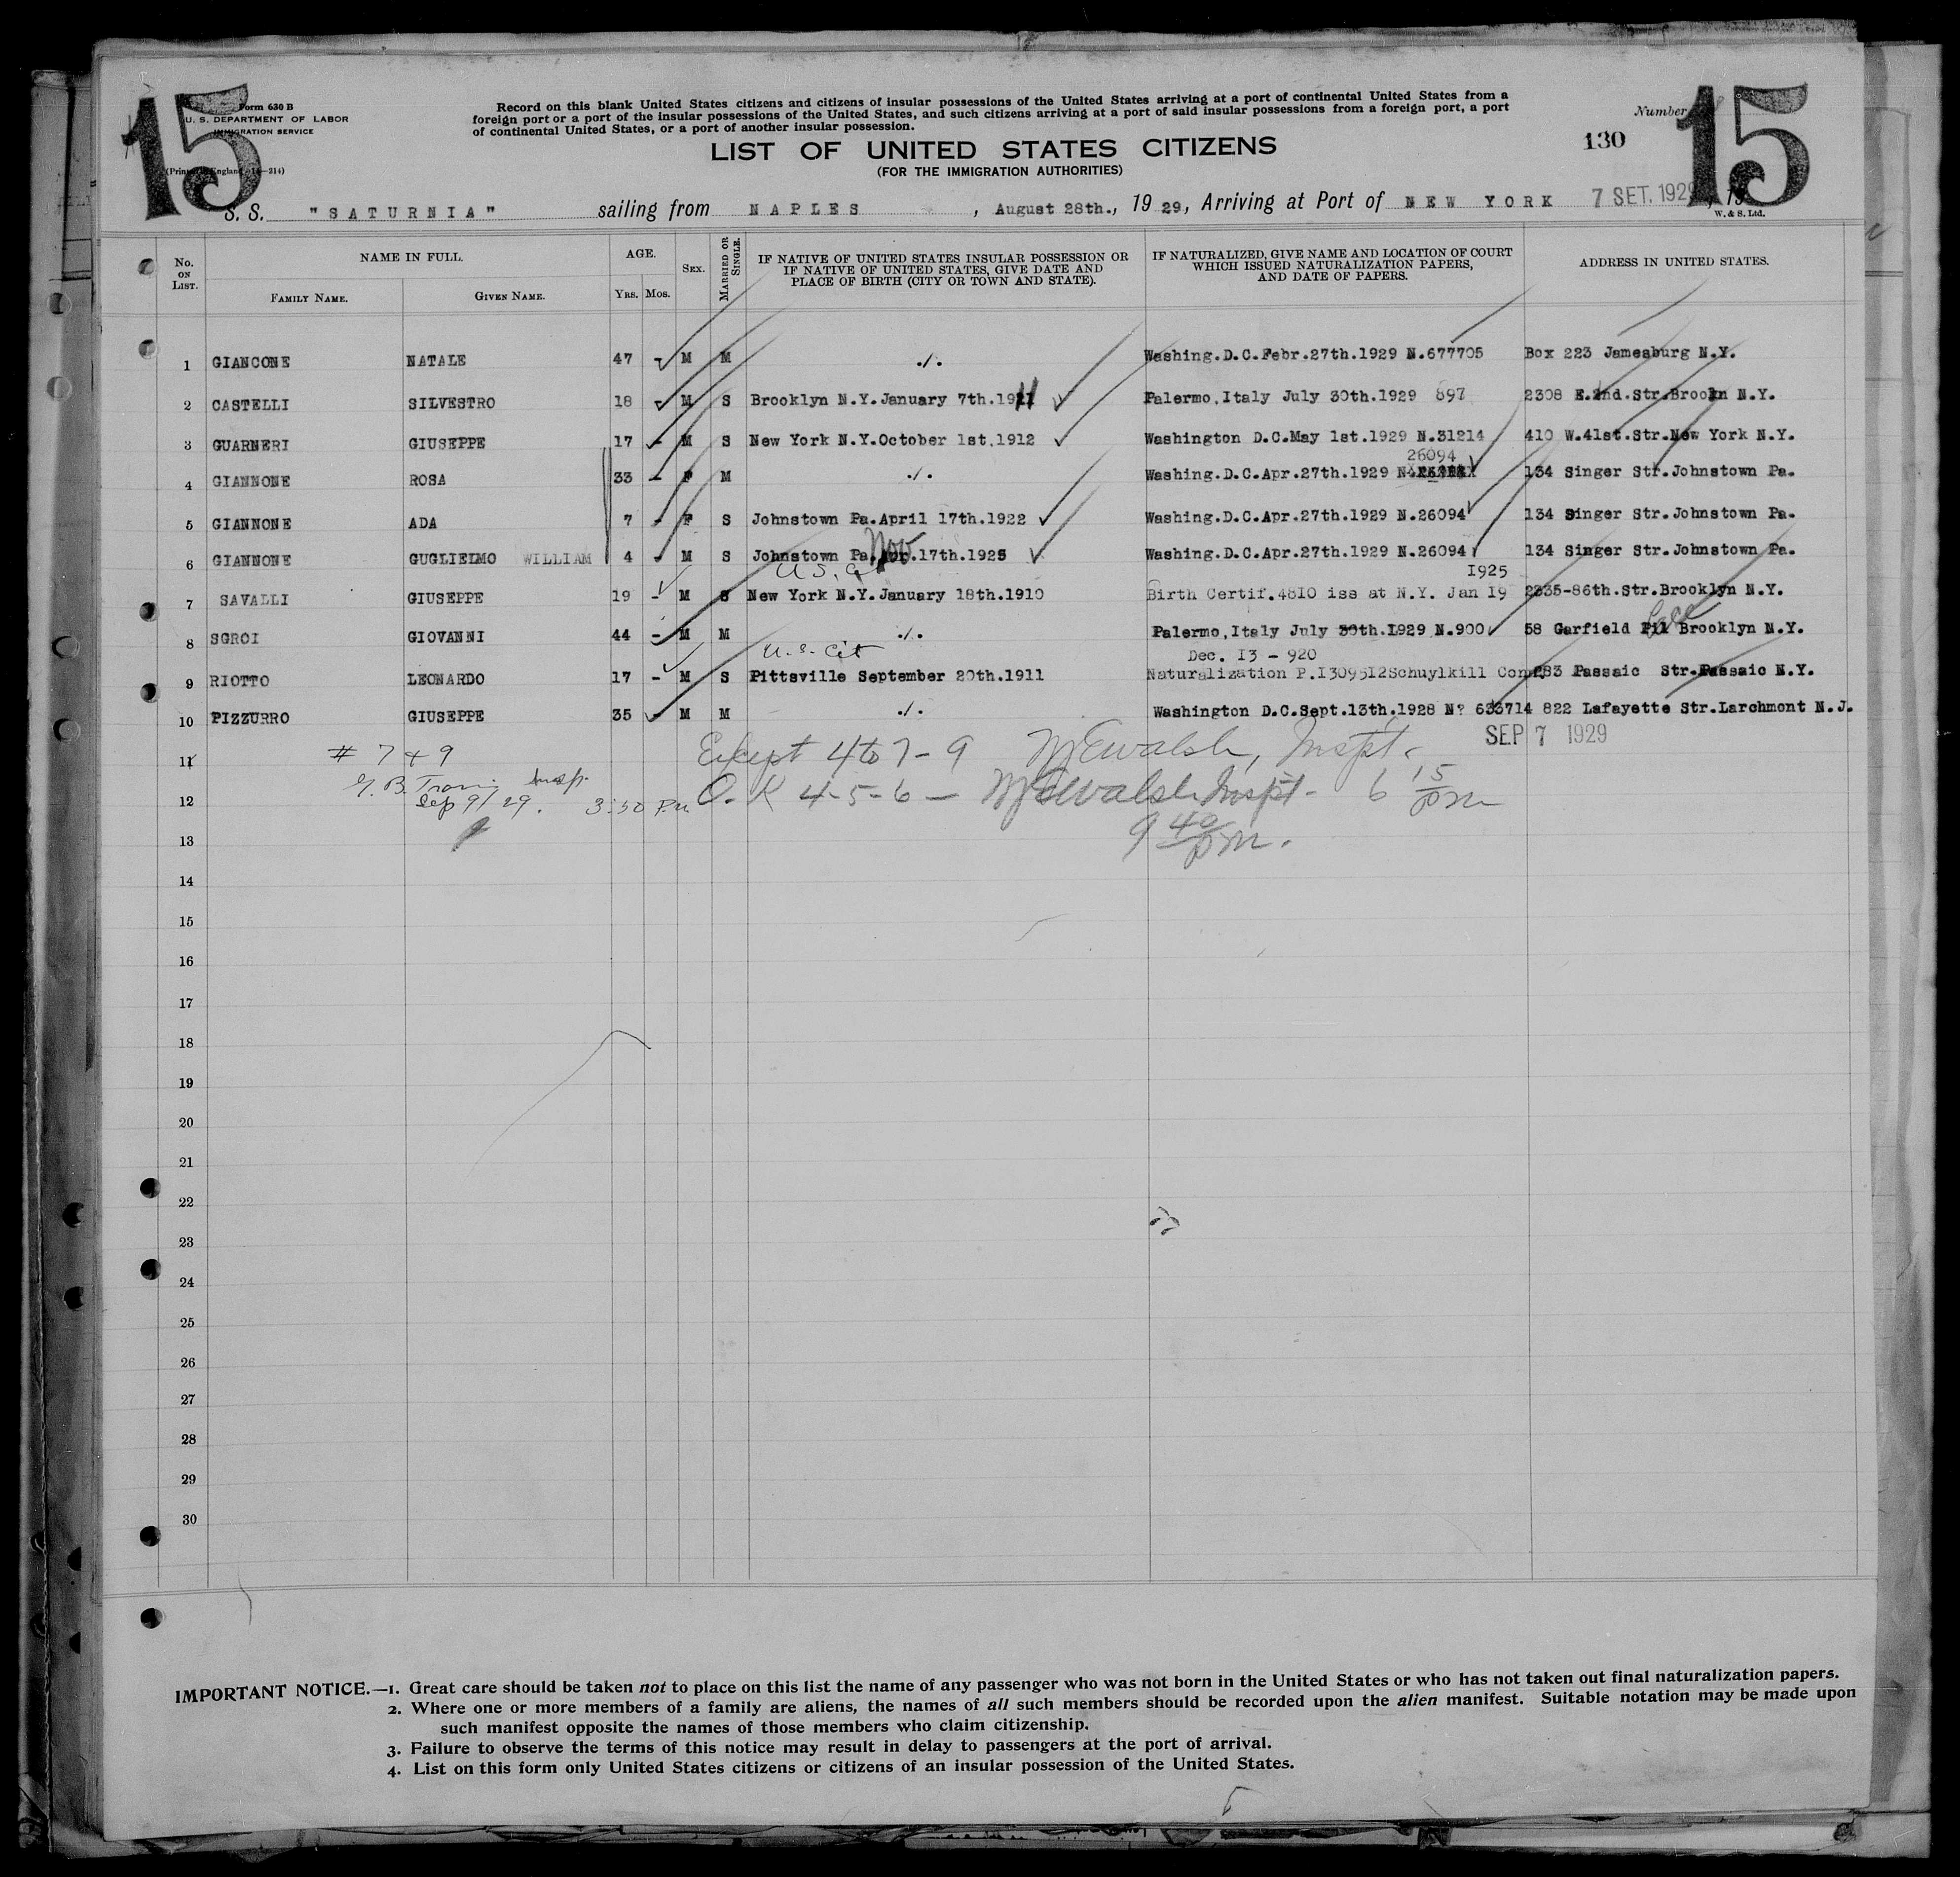 15
Form 630 B
U. S. DEPARTMENT OF LABOR
IMMIGRATION SERVICE
Record on this blank United States citizens and citizens of insular possessions of the United States arriving at a port of continental United States from a
foreign port or a port of the insular possessions of the United States, and such citizens arriving at a port of said insular possessions from a foreign port, a port
of continental United States, or a port of another insular possession.
Number
15
130
LIST OF UNITED STATES CITIZENS
(FOR THE IMMIGRATION AUTHORITIES)
S. S. "SATURNIA" sailing from NAPLES, August 28th., 1929, Arriving at Port of NEW YORK 7 SET. 1929, 19
W. & S. Ltd.
No. ON LIST. NAME IN FULL. AGE. SEX. MARRIED OR SINGLE. IF NATIVE OF UNITED STATES INSULAR POSSESSION OR IF NATIVE OF UNITED STATES, GIVE DATE AND PLACE OF BIRTH (CITY OR TOWN AND STATE). IF NATURALIZED, GIVE NAME AND LOCATION OF COURT WHICH ISSUED NATURALIZATION PAPERS, AND DATE OF PAPERS. ADDRESS IN UNITED STATES.
FAMILY NAME. GIVEN NAME. YRS. MOS.
1 GIANCONE NATALE 47 - M M ./. Washing.D.C.Febr.27th.1929 N.677705 Box 223 Jamesburg N.Y.
2 CASTELLI SILVESTRO 18 - M S Brooklyn N.Y.January 7th.1911 Palermo,Italy July 30th.1929 897 2308 E.2nd.Str.Brookn N.Y.
3 GUARNERI GIUSEPPE 17 - M S New York N.Y.October 1st.1912 Washington D.C.May 1st.1929 N.31214 410 W.41st.Str.New York N.Y.
26094
4 GIANNONE ROSA 33 - F M ./. Washing.D.C.Apr.27th.1929 N. 134 Singer Str.Johnstown Pa.
5 GIANNONE ADA 7 - F S Johnstown Pa.April 17th.1922 Washing.D.C.Apr.27th.1929 N.26094 134 Singer Str.Johnstown Pa.
Nov
6 GIANNONE GUGLIELMO WILLIAM 4 - M S Johnstown Pa.Apr.17th.1925 Washing.D.C.Apr.27th.1929 N.26094 134 Singer Str.Johnstown Pa.
U.S. Cit 1925
7 SAVALLI GIUSEPPE 19 - M S New York N.Y.January 18th.1910 Birth Certif.4810 iss at N.Y. Jan 19 2335-86th.Str.Brooklyn N.Y.
8 SGROI GIOVANNI 44 - M M ./. Palermo,Italy July 30th.1929 N.900 58 Garfield Brooklyn N.Y.
U.S. Cit Dec. I3 - 920
9 RIOTTO LEONARDO 17 - M S Pittsville September 20th.1911 Naturalization P.I309512Schuylkill 283 Passaic Str.Passaic N.Y.
10 PIZZURRO GIUSEPPE 35 - M M ./. Washington D.C.Sept.13th.1928 Nº 633714 822 Lafayette Str.Larchmont N.J.
SEP 7 1929
11 # 7 & 9 Except 4 to 7 - 9 Walsh, Inspt.
12 Insp. Sep 9/29. 3:30 P.M. O.K 4-5-6 - Walsh Inspt - 6 15 pm
13 9 40 pm.
14
15
16
17
18
19
20
21
22
23
24
25
26
27
28
29
30
IMPORTANT NOTICE.—1. Great care should be taken not to place on this list the name of any passenger who was not born in the United States or who has not taken out final naturalization papers.
2. Where one or more members of a family are aliens, the names of all such members should be recorded upon the alien manifest. Suitable notation may be made upon
such manifest opposite the names of those members who claim citizenship.
3. Failure to observe the terms of this notice may result in delay to passengers at the port of arrival.
4. List on this form only United States citizens or citizens of an insular possession of the United States.